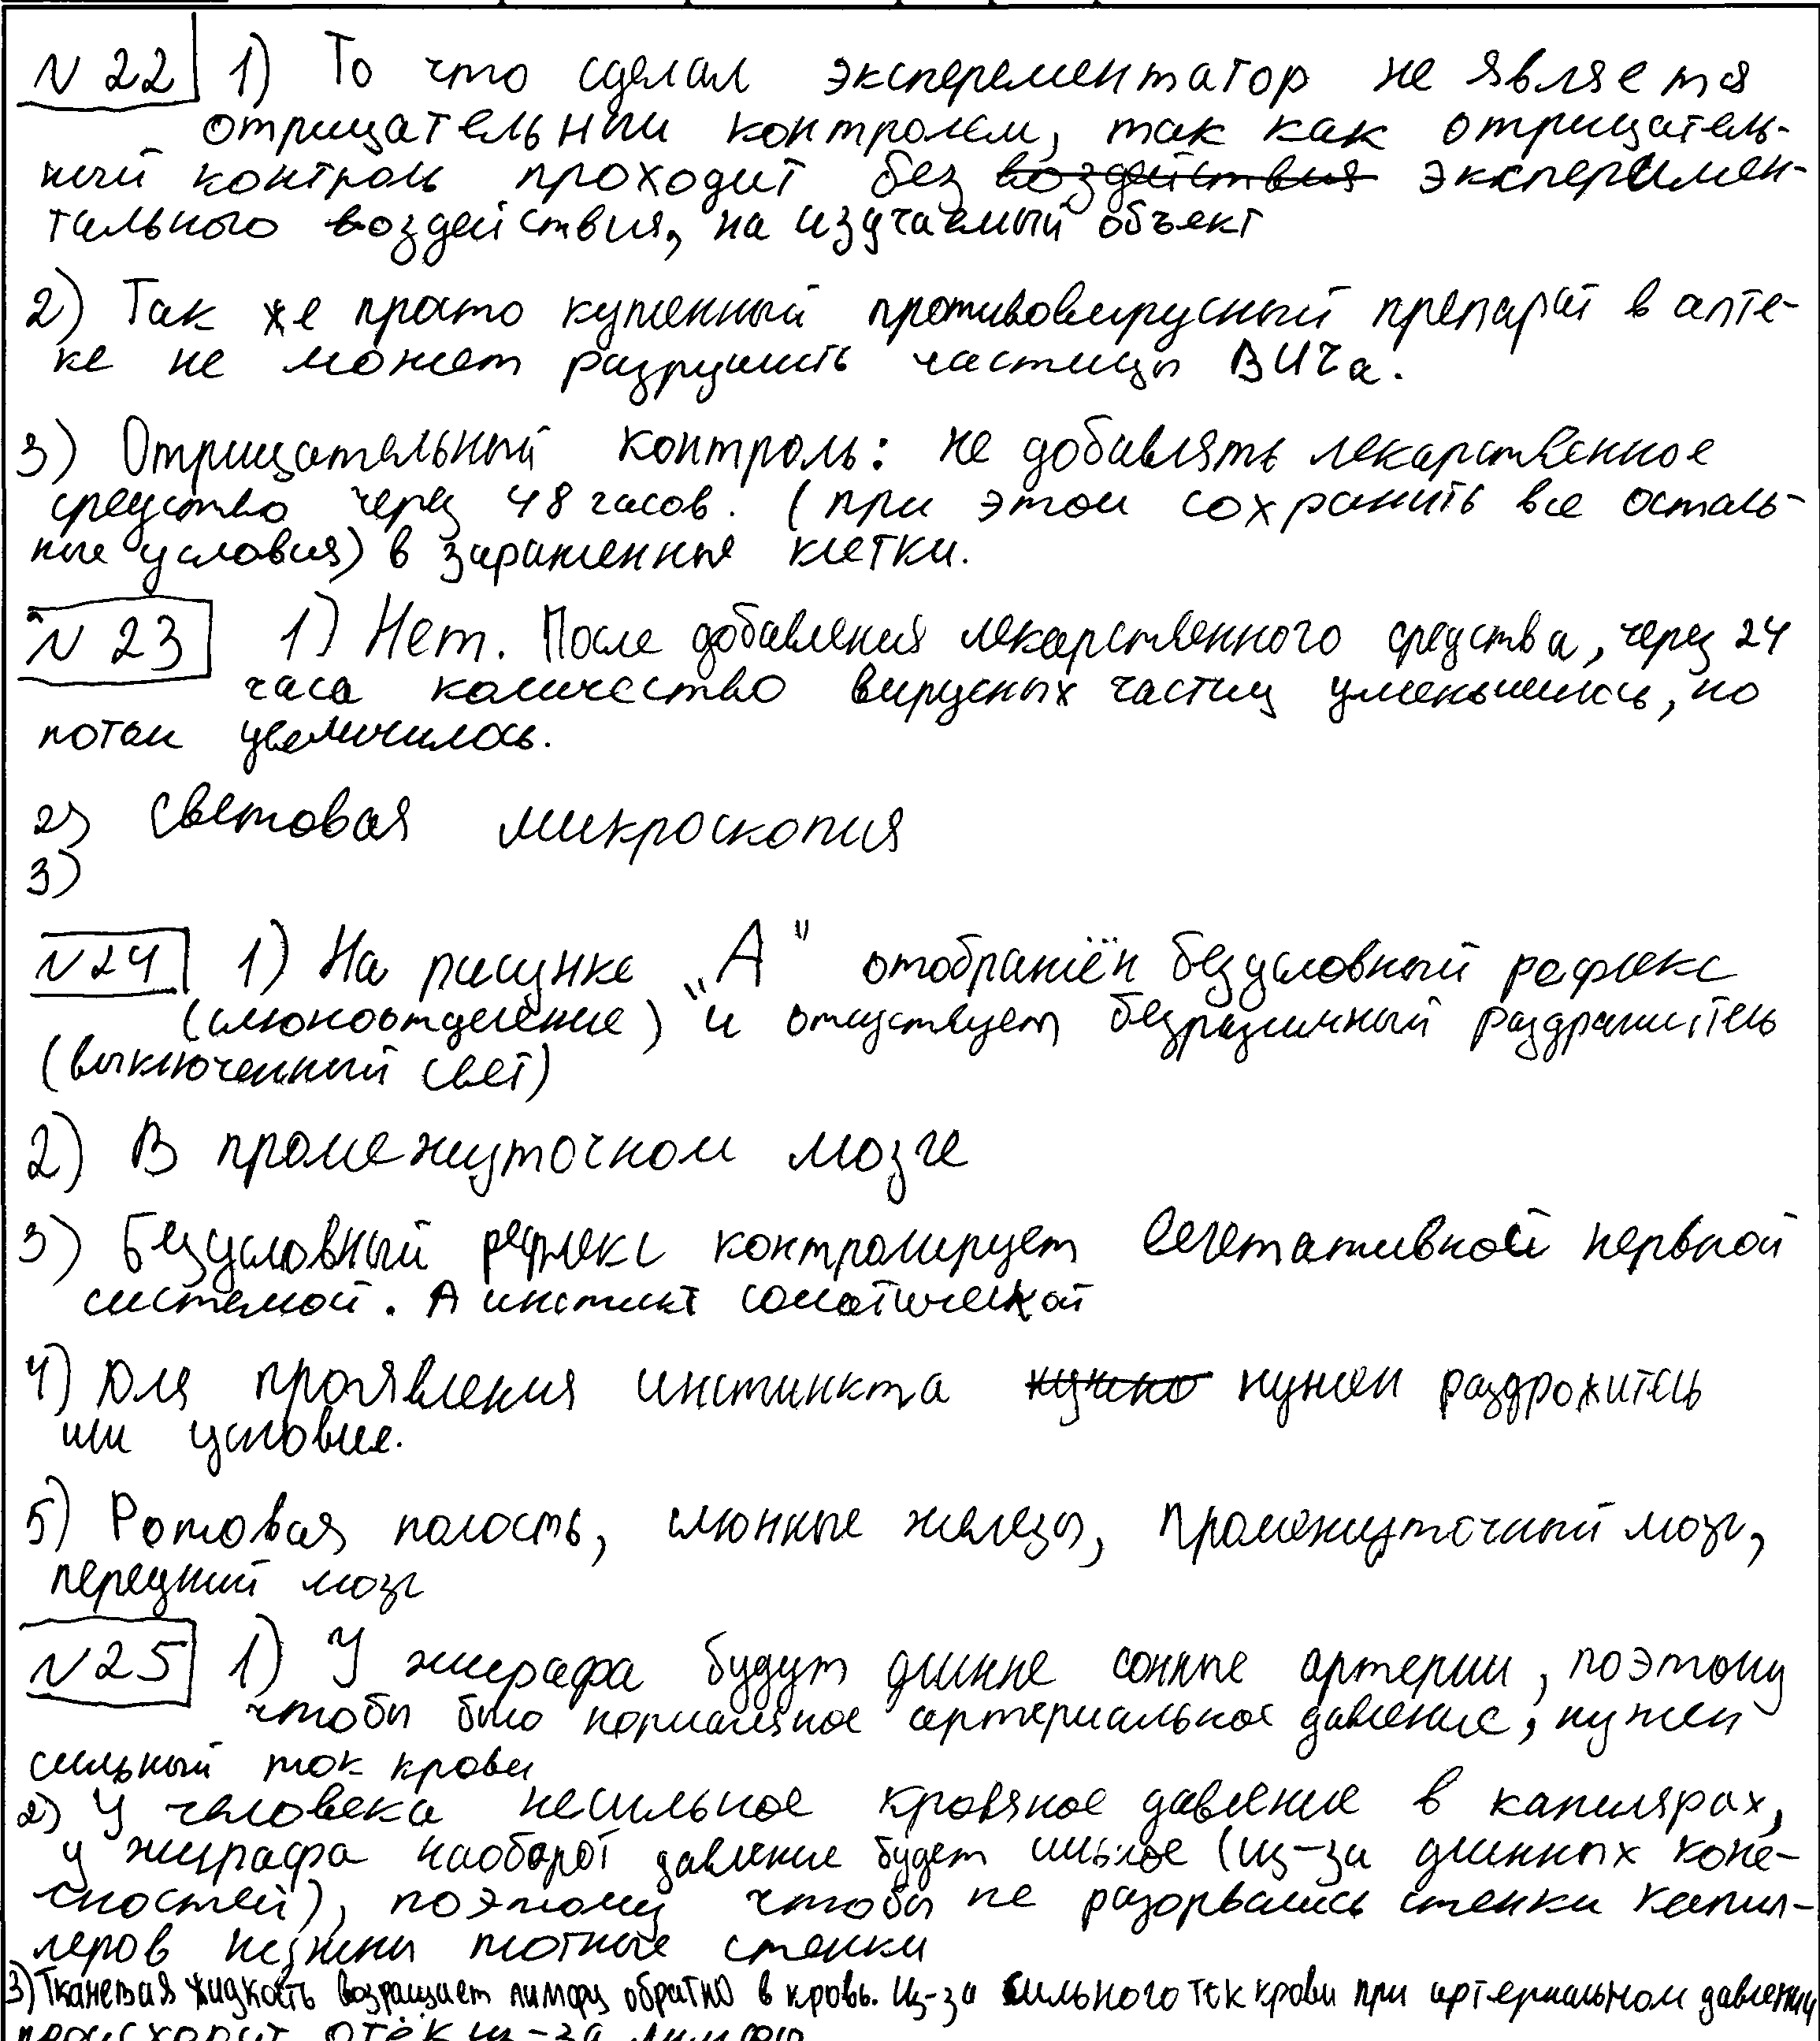 N 22 1) То что сделал эксперементатор не является
отрицательным контролем, так как отрицатель-
ный контроль проходит без воздействия эксперимен-
тального воздействия, на изучаемый объект
2) Так же просто купленный противовирусный препарат в апте-
ке не может разрушить частицы ВИЧа.
3) Отрицательный контроль: не добавлять лекарственное
средство через 48 часов. (при этом сохранить все осталь-
ные условия) в зараженные клетки.
N 23 1) Нет. После добавления лекарственного средства, через 24
часа количество вирусных частиц уменьшилось, но
потом увеличилось.
2) Световая микроскопия
3)
N 24 1) На рисунке "А" отображён безусловный рефлекс
(слюноотделение) и отсутствует безразличный раздражитель
(выключенный свет)
2) В промежуточном мозге
3) Безусловный рефлекс контролирует вегетативной нервной
системой. А инстинкт соматической
4) Для проявления инстинкта нужно нужен раздрожитель
или условие.
5) Ротовая полость, слюнные железы, промежуточный мозг,
передний мозг
N 25 1) У жирафа будут длинне сонные артерии, поэтому
чтобы было нормальное артериальное давление, нужен
сильный ток крови
2) У человека несильное кровяное давление в капилярах,
у жирафа наоборот давление будет сильное (из-за длинных коне-
чностей), поэтому чтобы не разорвались стенки капил-
леров нужны плотные стенки
3) Тканевая жидкость возращает лимфу обратно в кровь. Из-за сильного ток крови при артериальном давлении
происходит отёк из-за лимфы